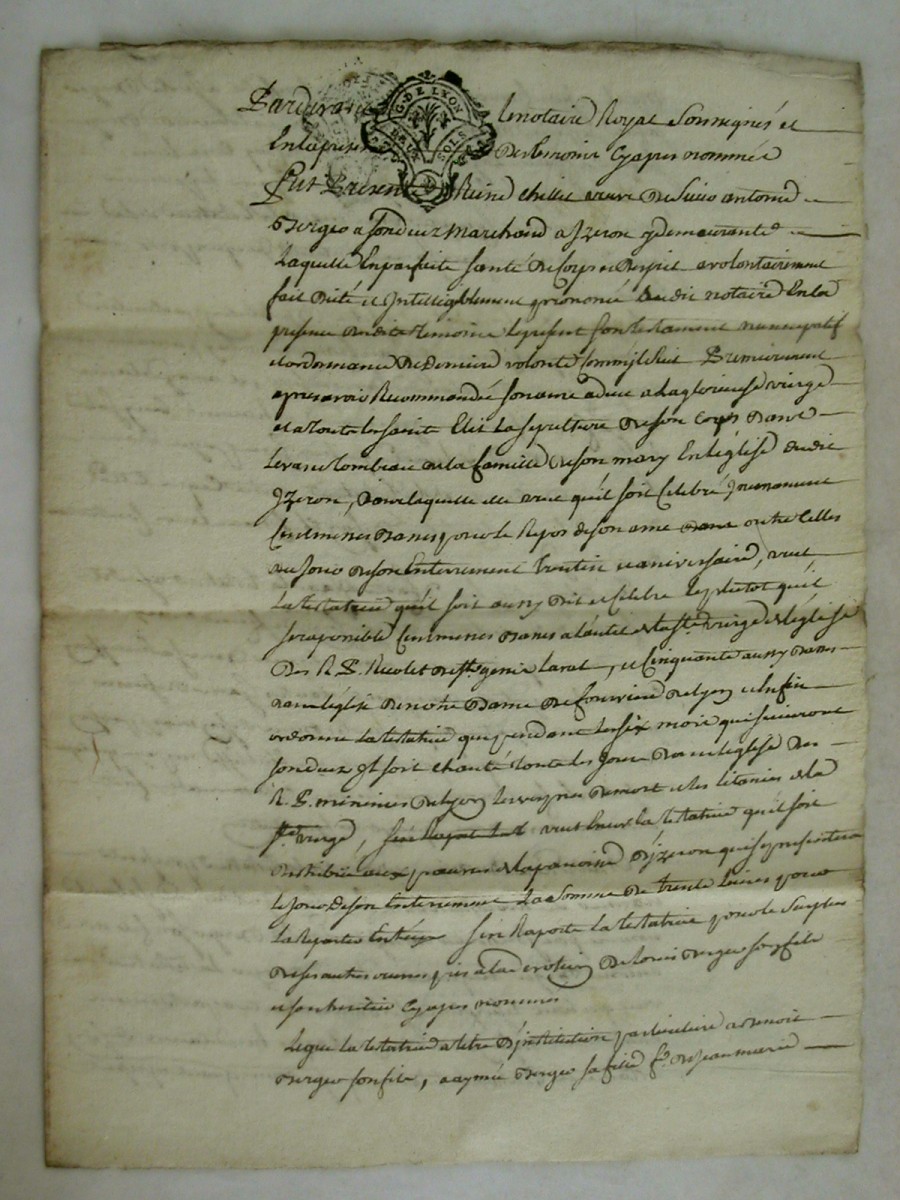 Pardevant le notaire Royal Soussignés et
G. DE LYON
DEUX SOLS
En la presence des temoins cy apres nommés
Fut Presente Reine veuve de Sieur antoine
Berger a son decez Marchand a Jzeron y demeurante
Laquelle En parfaite santé de corps et d'esprit a volontairement
fait dicté et Intelligiblement prononcé audit notaire En la
presence desdits temoins le present son testament nuncupatif
et ordonnance de derniere volonté Comm'il suit Premierement
apres avoir Recommandé son ame a dieu a la glorieuse vierge
et a Tous les saints Elit la sepulture de son corps dans
le vas et tombeau de la famille de son mary En l'église dudit
Jzeron, dans laquelle elle veut qu'il soit Celebré
Cent messes basses pour le Repos de son ame outre Celles
du jour de son Enterrement trentin et aniversaire, veut
La testatrice qu'il soit aussy dit et Celebre le plutot qu'il
sera possible Cent messes basses a l'autel de la ste. vierge de l'église
Des R. P. Recolets de st. genis laval, et Cinquante aussy basses
dans l'église de notre Dame de fourviere de Lyon et Enfin
ordonne La testatrice que pendant les six mois qui suivront
son decez Il soit chanté tous les jours dans l'église des
R. P. minimes de Lyon les vespres de mort et les litanies de la
ste. vierge, s'en Raporte La veut Encor la testatrice qu'il soit
distribué aux pauvres de la paroisse d'Jzeron qui se presenteront
le jour de son Enterrement La somme de trente livres pour
La Repartir Entr'eux s'en Raporte La testatrice pour le surplus
de ses autres œuvres pies a la devotion de Louis Berger son fils
et son heritier cy apres nommé
Legue la testatrice a titre d'institution particuliere a Benoit
Berger son fils, a aymée Berger sa fille fe. de jean marie